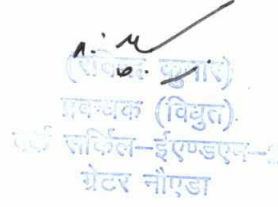 (रविन्द्र कुमार)
प्रबन्धक (विद्युत)
वर्क सर्किल-ईएण्डएम-
ग्रेटर नौएडा